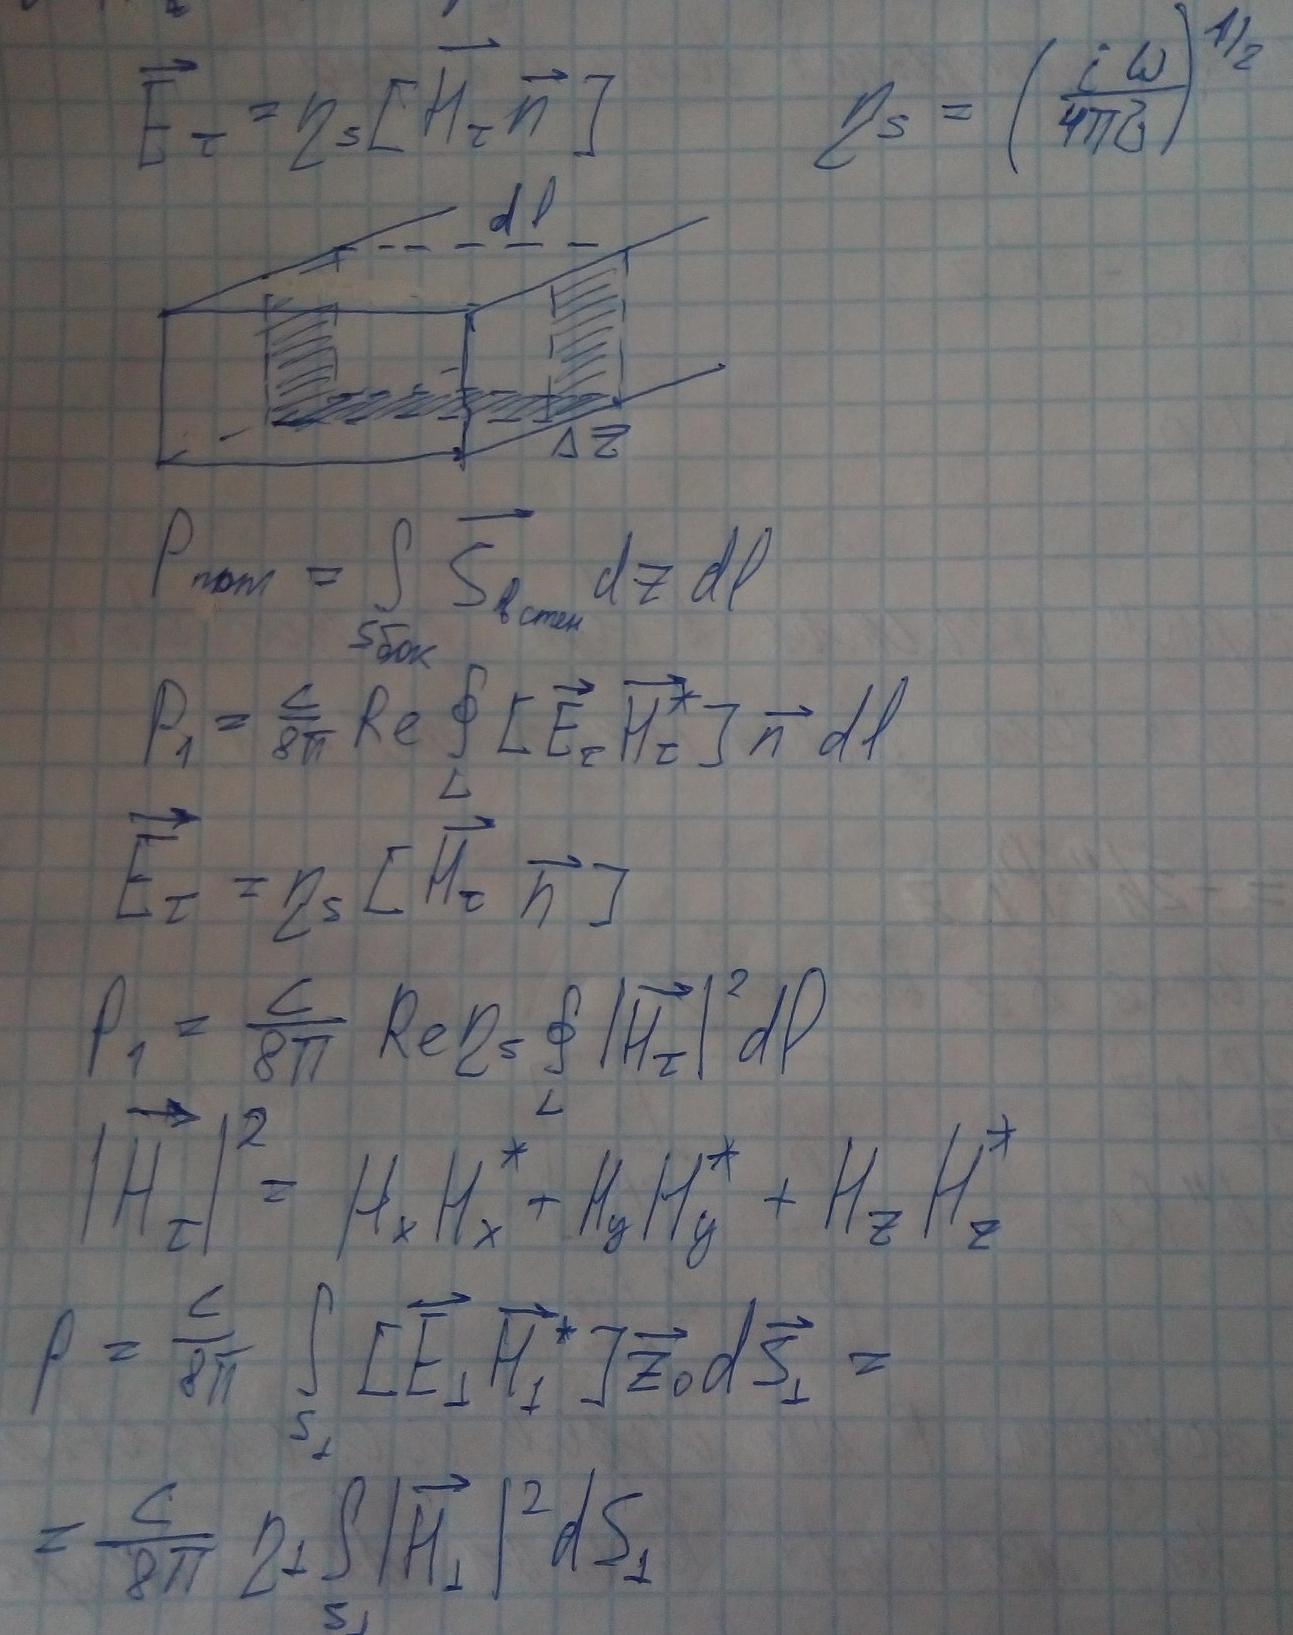 E⃗_τ = η_s [H⃗_τ n⃗]    η_s = (iω / 4πσ)^{1/2}
dl
Δz
P_пот = ∫_{S бок} S⃗_{в стен} dz dl
P_1 = c/8π Re ∮_L [E⃗_τ H⃗_τ^*] n⃗ dl
E⃗_τ = η_s [H⃗_τ n⃗]
P_1 = c/8π Re η_s ∮_L |H⃗_τ|^2 dl
|H⃗_τ|^2 = H_x H_x^* + H_y H_y^* + H_z H_z^*
P = c/8π ∫_{S_⊥} [E⃗_⊥ H⃗_⊥^*] z⃗_0 dS⃗_⊥ =
= c/8π η_⊥ ∫_{S_⊥} |H⃗_⊥|^2 dS_⊥